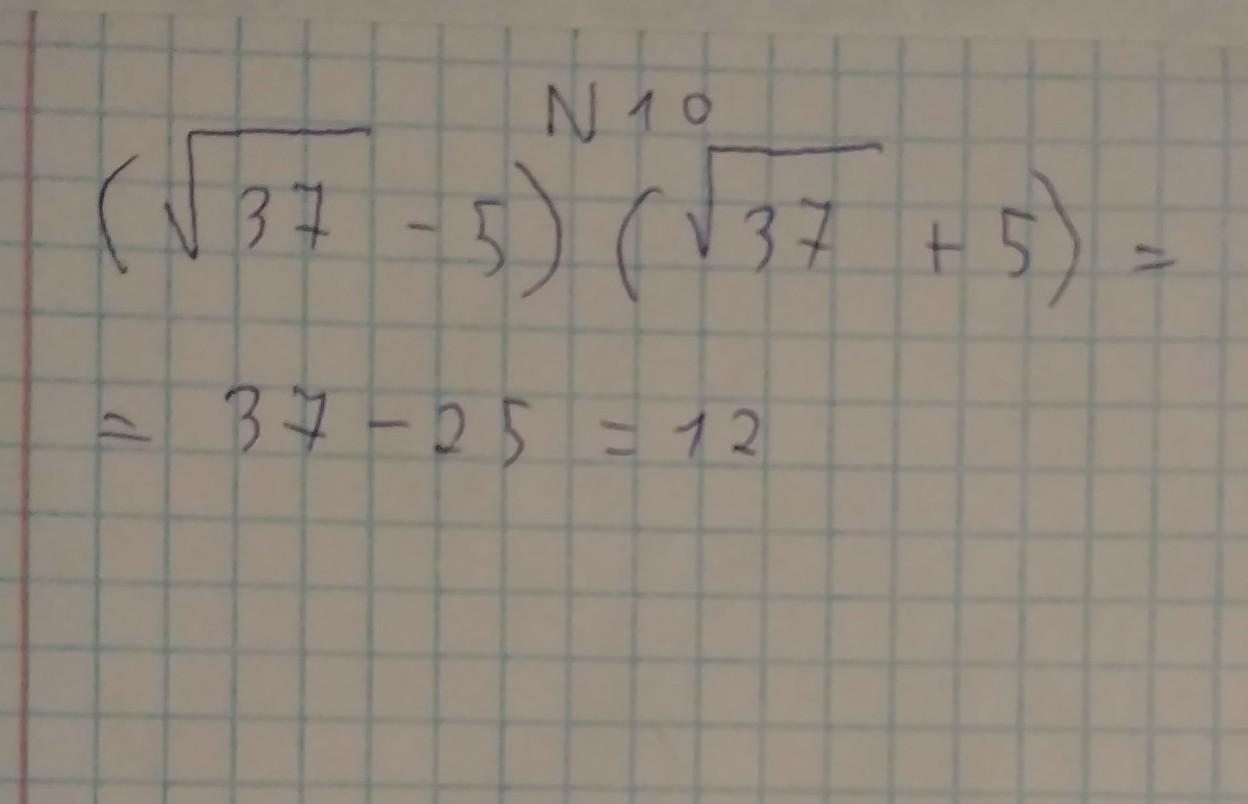 N 10
(√37 - 5) (√37 + 5) =
= 37 - 25 = 12